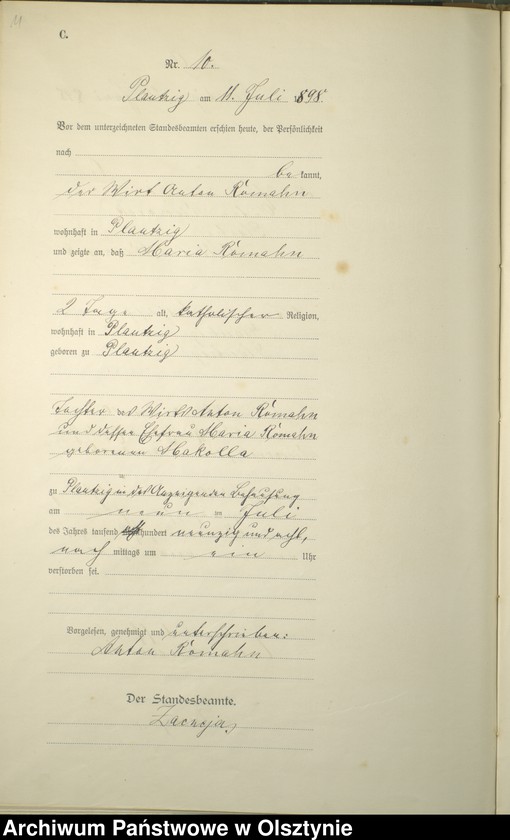 11
C.
Nr. 10.
Plautzig am 11. Juli 1898.
Vor dem unterzeichneten Standesbeamten erschien heute, der Persönlichkeit
nach
be kannt,
der Wirt Anton Romahn
wohnhaft in Plautzig
und zeigte an, daß Maria Romahn
2 Tage alt, katholischer Religion,
wohnhaft in Plautzig
geboren zu Plautzig
Tochter des Wirts Anton Romahn
und dessen Ehefrau Maria Romahn
geborenen Makolla
zu Plautzig in des Anzeigenden Behausung
am neun ten Juli
des Jahres tausend achthundert neunzig und acht,
nach mittags um ein Uhr
verstorben sei.
Vorgelesen, genehmigt und unterschrieben:
Anton Romahn
Der Standesbeamte.
Archiwum Państwowe w Olsztynie